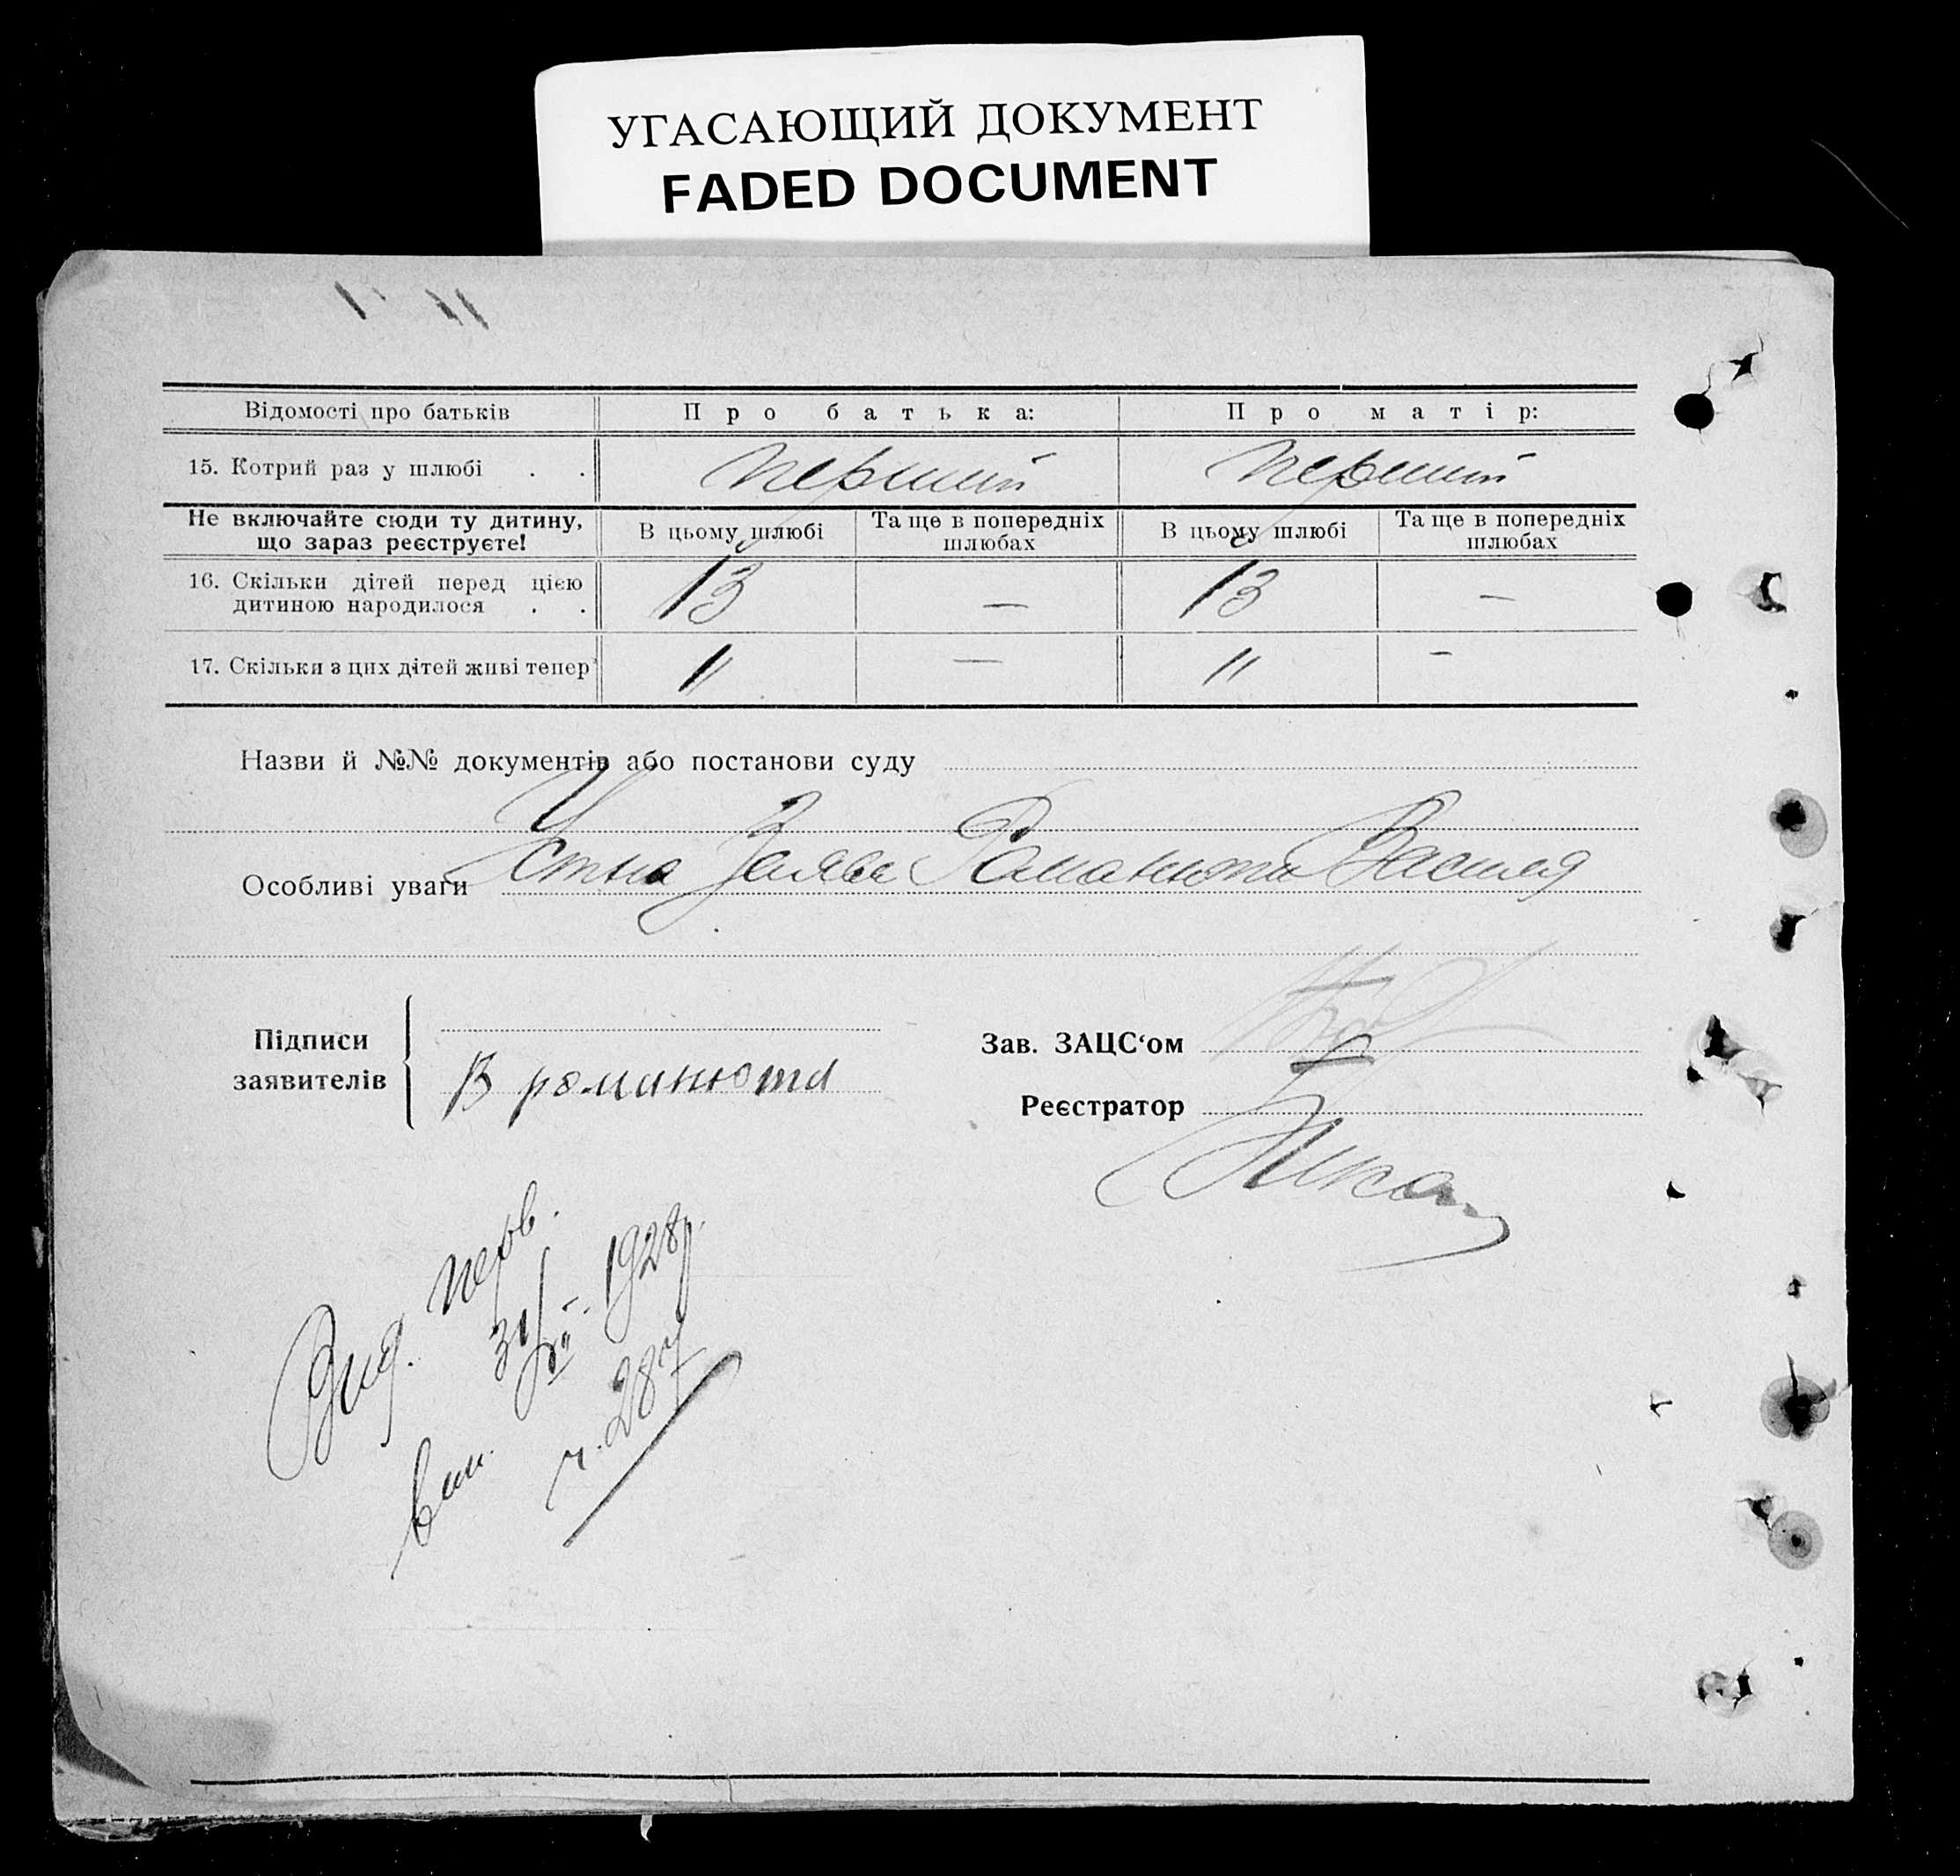 УГАСАЮЩИЙ ДОКУМЕНТ
FADED DOCUMENT
Відомості про батьків Про батька: Про матір:
15. Котрий раз у шлюбі . . перший перший
Не включайте сюди ту дитину, що зараз реєструєте! В цьому шлюбі Та ще в попередніх шлюбах В цьому шлюбі Та ще в попередніх шлюбах
16. Скільки дітей перед цією дитиною народилося . . 13 — 13 —
17. Скільки з цих дітей живі тепер 11 — 11 -
Назви й №№ документів або постанови суду
Устна Заява Романюти Василя
Особливі уваги
Підписи заявителів
В романюта
Зав. ЗАЦС‘ом
Реєстратор
Вид. перв.
вип. 1928р.
ч. 287